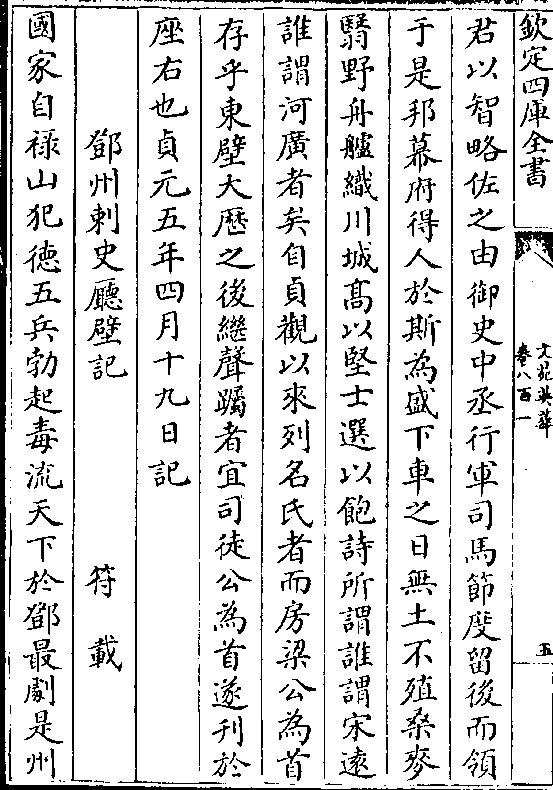 欽定四庫全書
文苑英華
卷八百一
五
君以智略佐之由御史中丞行軍司馬節度留後而領
于是邦幕府得人於斯為盛下車之日無土不殖桑麥
翳野舟艫織川城髙以堅士選以飽詩所謂誰謂宋逺
誰謂河廣者矣自貞觀以來列名氏者而房梁公為首
存乎東壁大厯之後繼聲躅者宜司徒公為首遂刋於
座右也貞元五年四月十九日記
鄧州刺史廳壁記 符載
國家自禄山犯徳五兵勃起毒流天下於鄧最劇是州